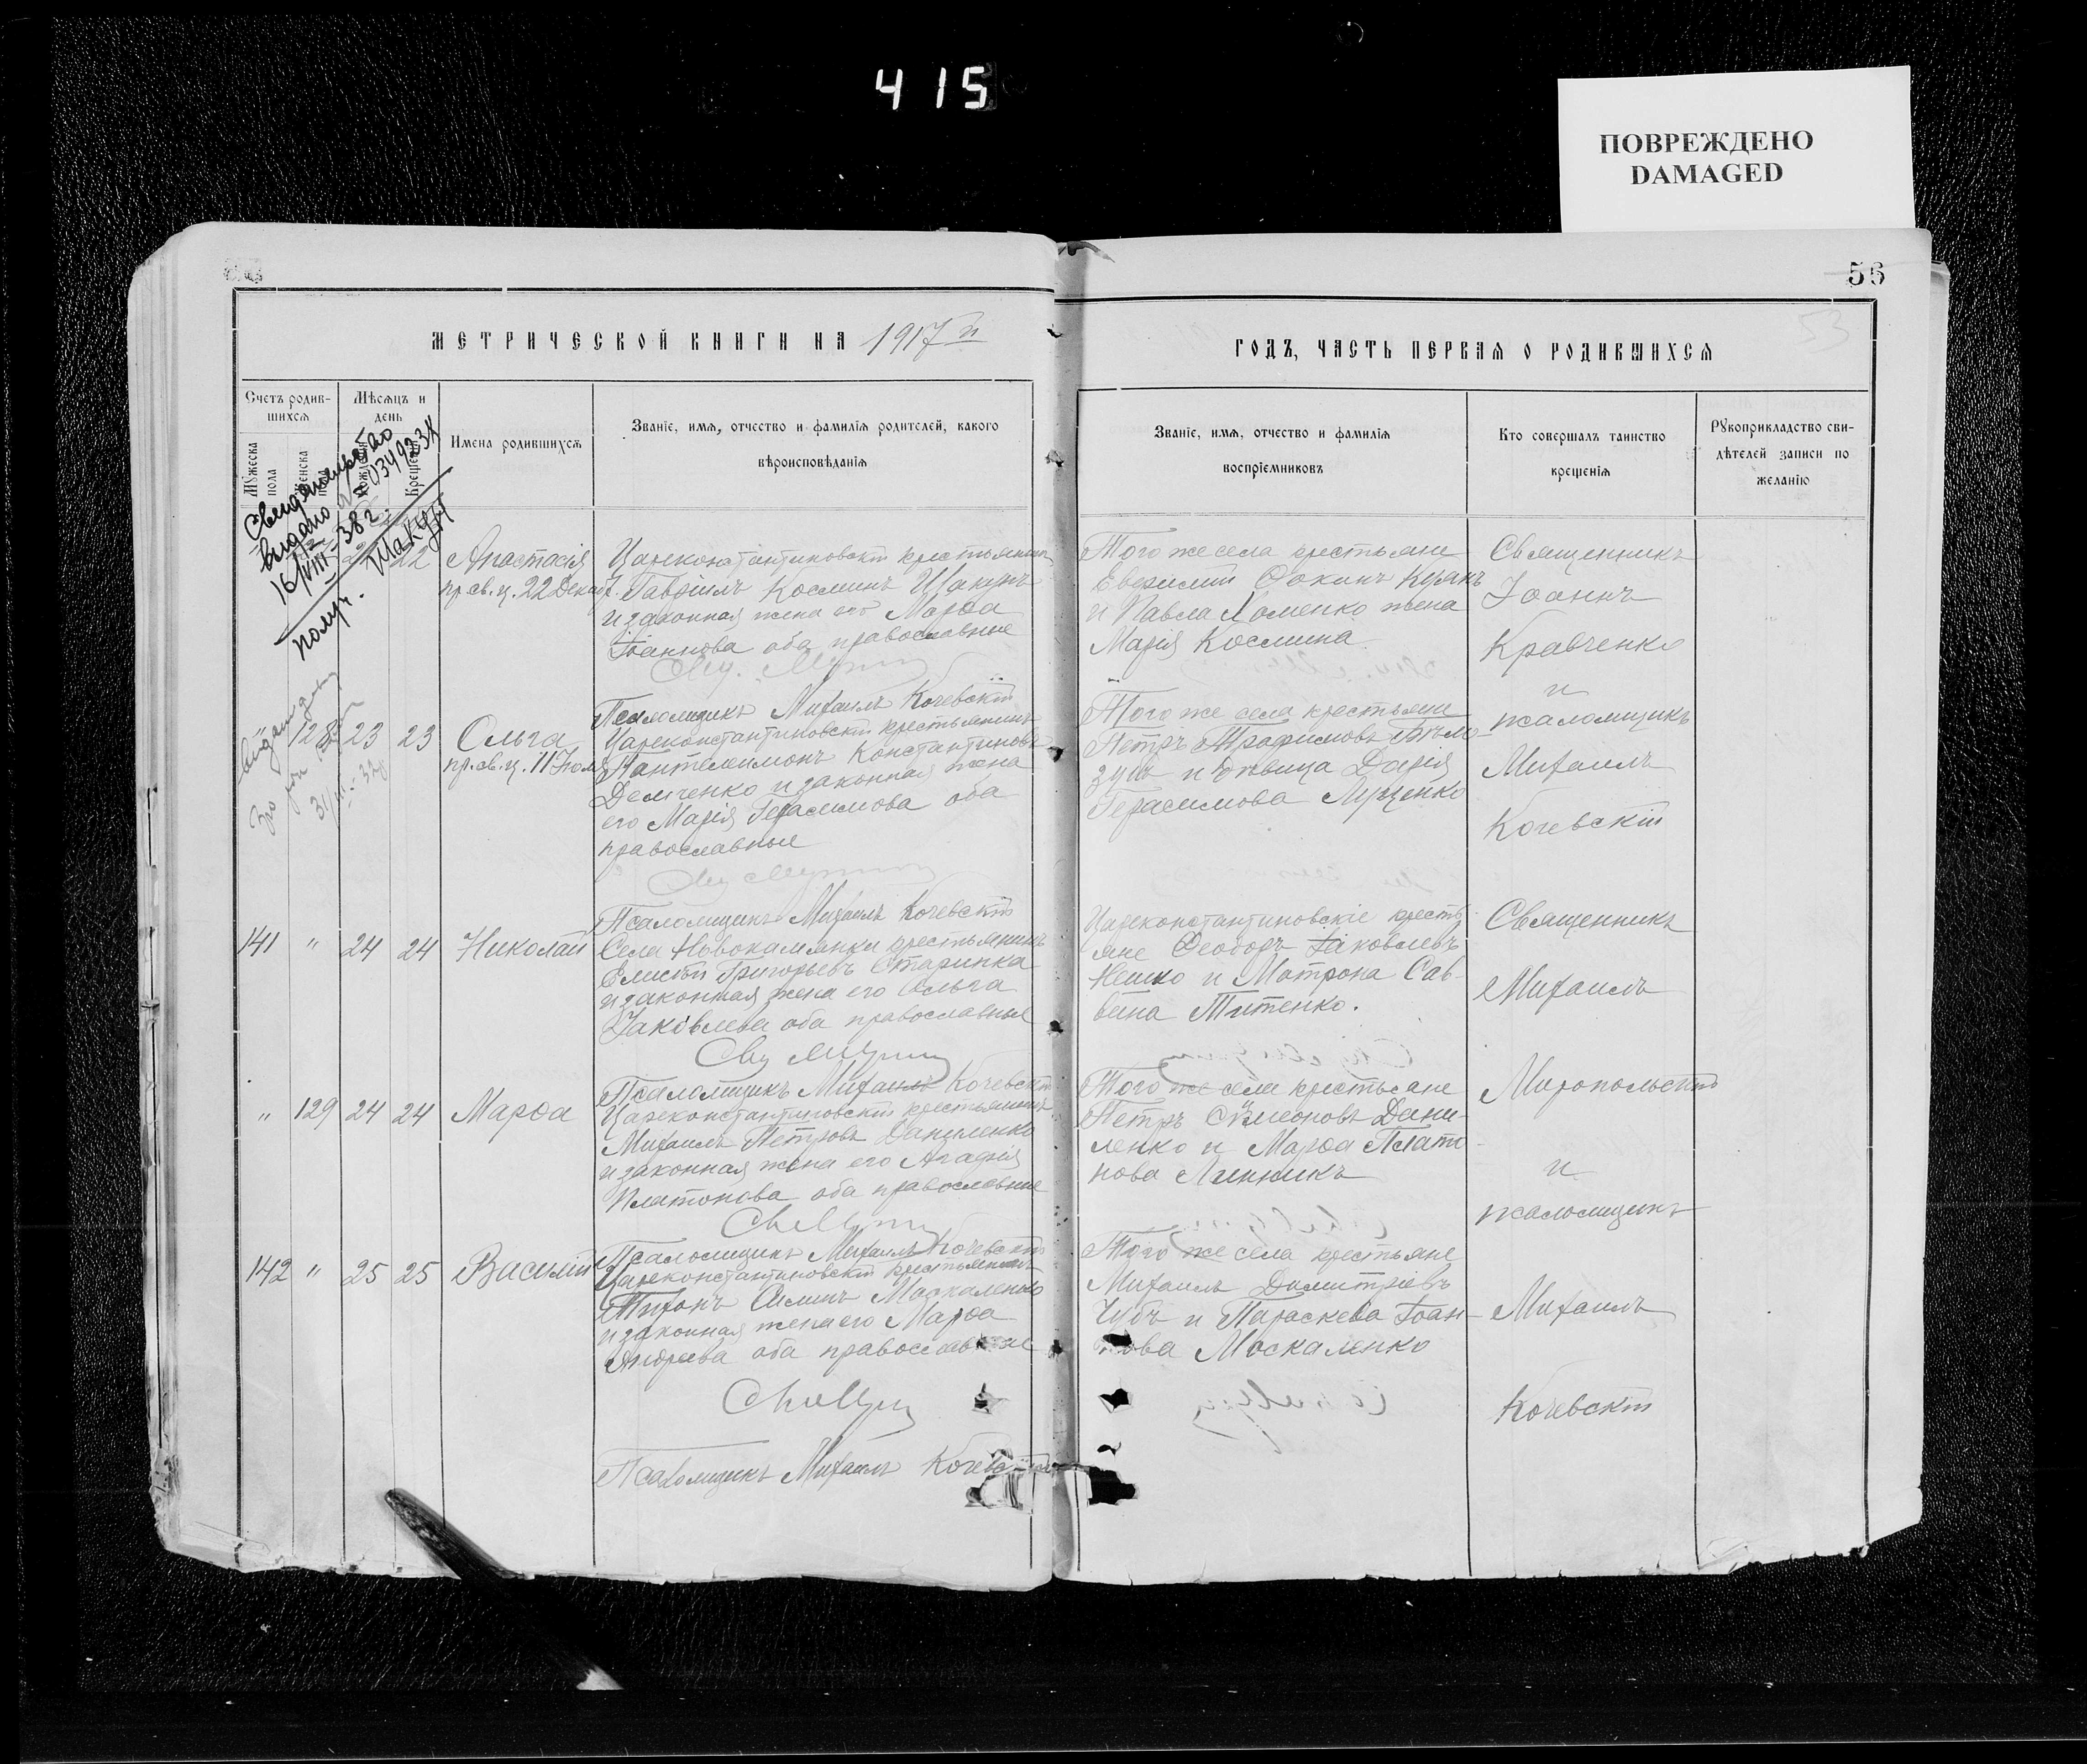 415
ПОВРЕЖДЕНО
DAMAGED
56
53
МЕТРИЧЕСКОЙ КНИГИ НА 1917 й
ГОДЪ, ЧАСТЬ ПЕРВАЯ О РОДИВШИХСЯ
Счетъ родив-
шихся
Мѣсяцъ и
день
Мужеска
пола
Крещенія
Имена родившихся
Званіе, имя, отчество и фамилія родителей, какого
вѣроисповѣданія
Званіе, имя, отчество и фамилія
воспріемниковъ
Кто совершалъ таинство
крещенія
Рукоприкладство сви-
дѣтелей записи по
желанію
Свидетельство
выдано
16/VIII-38 г.
получ.
22 Анастасія
пр. св. ц. 22 Декаб.
Цареконстантиновскій крестьянинъ
Гавріилъ Косминъ
и законная жена его Марѳа
Іоаннова оба православные
Того же села крестьяне
Евѳимій Ѳокинъ
и Павла Хоменко жена
Марія Космина
Священникъ
Іоаннъ
Кравченко
и
псаломщикъ
Михаилъ
Кочевскій
Псаломщикъ Михаилъ Кочевскій
128 23 23 Ольга
пр. св. ц. 11 Іюля
Цареконстантиновскій крестьянинъ
Пантелеимонъ Константиновъ
Демченко и законная жена
его Марія Герасимова оба
православные
Того же села крестьяне
Петръ Трофимовъ
и дѣвица Дарія
Герасимова Луценко
Псаломщикъ Михаилъ Кочевскій
141 " 24 24 Николай
Села Новокамянки крестьянинъ
Елисѣй Григорьевъ Старинка
и законная жена его Ольга
Іаковлева оба православные
Цареконстантиновскіе кресть-
яне Ѳеодоръ Іаковлевъ
Нешко и Матрона Сав-
вина Титенко.
Священникъ
Михаилъ
Миропольскій
и
псаломщикъ
Михаилъ
Кочевскій
Псаломщикъ Михаилъ Кочевскій
" 129 24 24 Марѳа
Цареконстантиновскій крестьянинъ
Михаилъ Петровъ Даниленко
и законная жена его Агафія
Платонова оба православные
Того же села крестьяне
Петръ Сѵмеоновъ Дани-
ленко и Марѳа Плато-
нова Линникъ
Псаломщикъ Михаилъ Кочевскій
142 " 25 25 Василій
Цареконстантиновскій крестьянинъ
Тихонъ Силинъ Москаленко
и законная жена его Марѳа
Андреева оба православные
Того же села крестьяне
Михаилъ Димитріевъ
Чубъ и Параскева Іоан-
нова Москаленко
Псаломщикъ Михаилъ Кочевскій